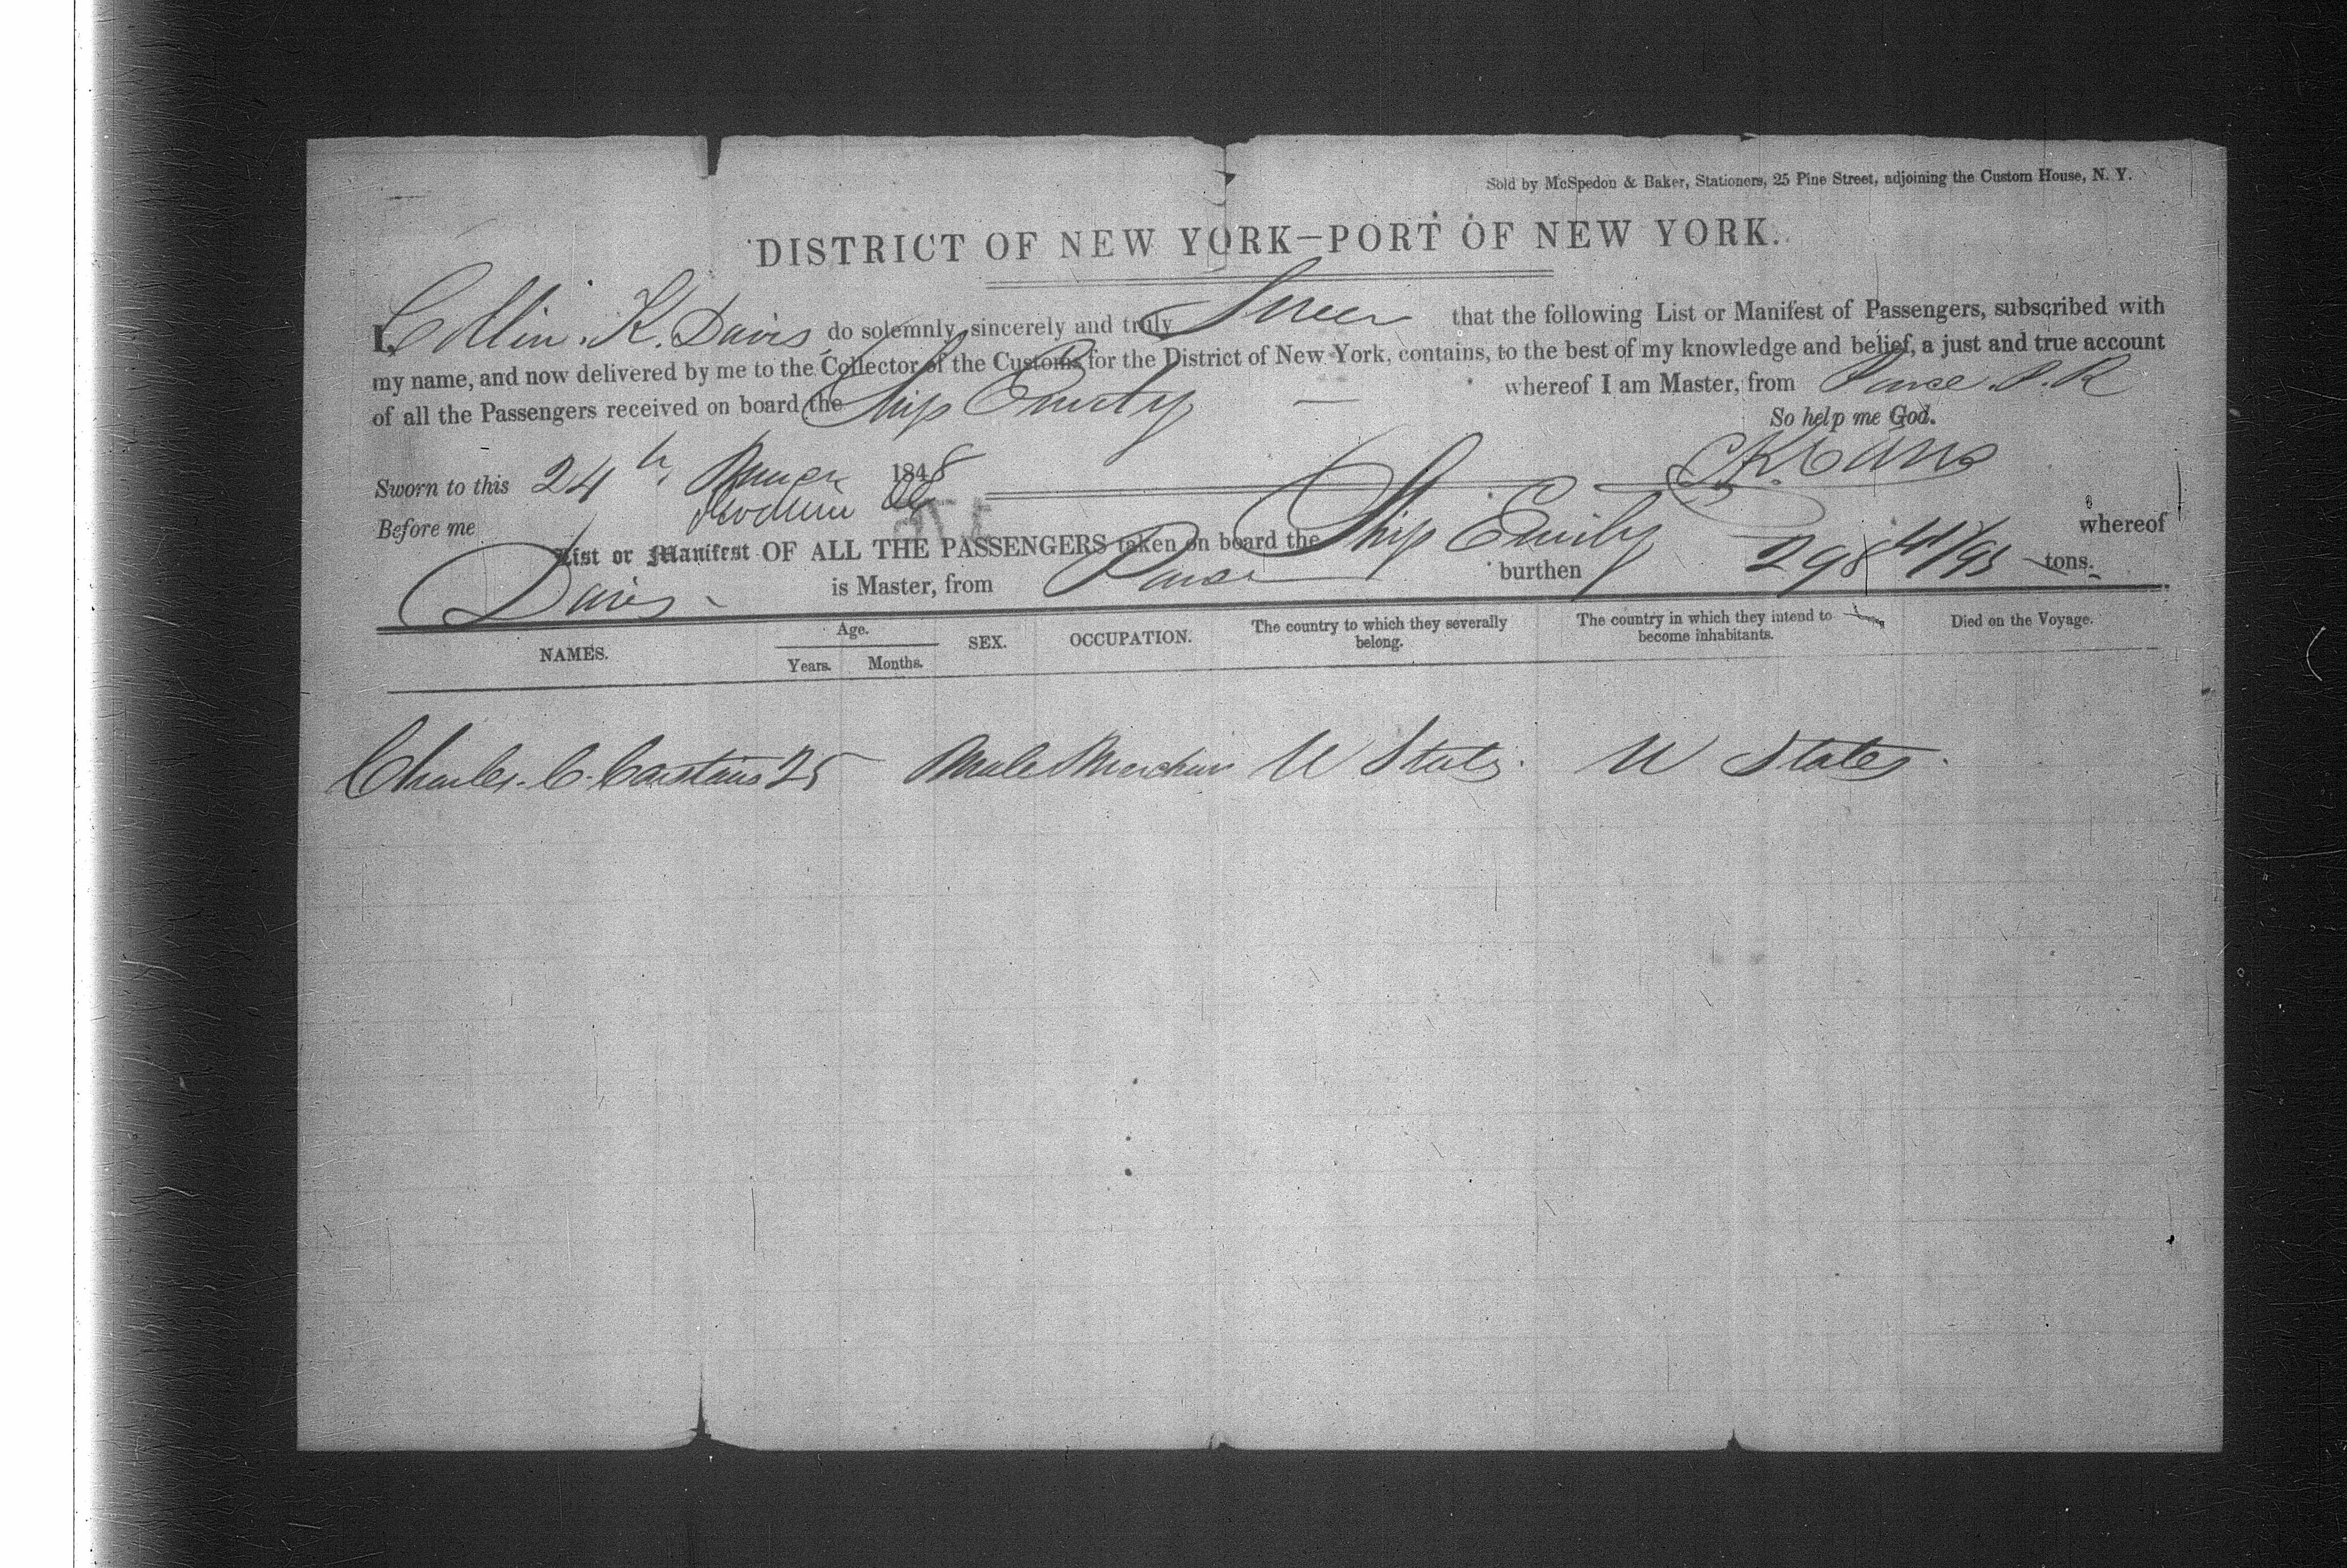 Sold by McSpedon & Baker, Stationers, 25 Pine Street, adjoining the Custom House, N. Y.
DISTRICT OF NEW YORK–PORT OF NEW YORK.
I, Collin. K. Davis do solemnly, sincerely and truly Swear that the following List or Manifest of Passengers, subscribed with
my name, and now delivered by me to the Collector of the Customs for the District of New York, contains, to the best of my knowledge and belief, a just and true account
of all the Passengers received on board the Ship Emily whereof I am Master, from Ponce. P. R
So help me God.
Sworn to this 24th 1848 C K Davis
Before me
List or Manifest OF ALL THE PASSENGERS taken on board the Ship Emily whereof
Davis is Master, from Ponce burthen 298 41/95 tons.
NAMES. Age. Years. Months. SEX. OCCUPATION. The country to which they severally belong. The country in which they intend to become inhabitants. Died on the Voyage.
Charles. C. 25 Male Merchant U States. U States.